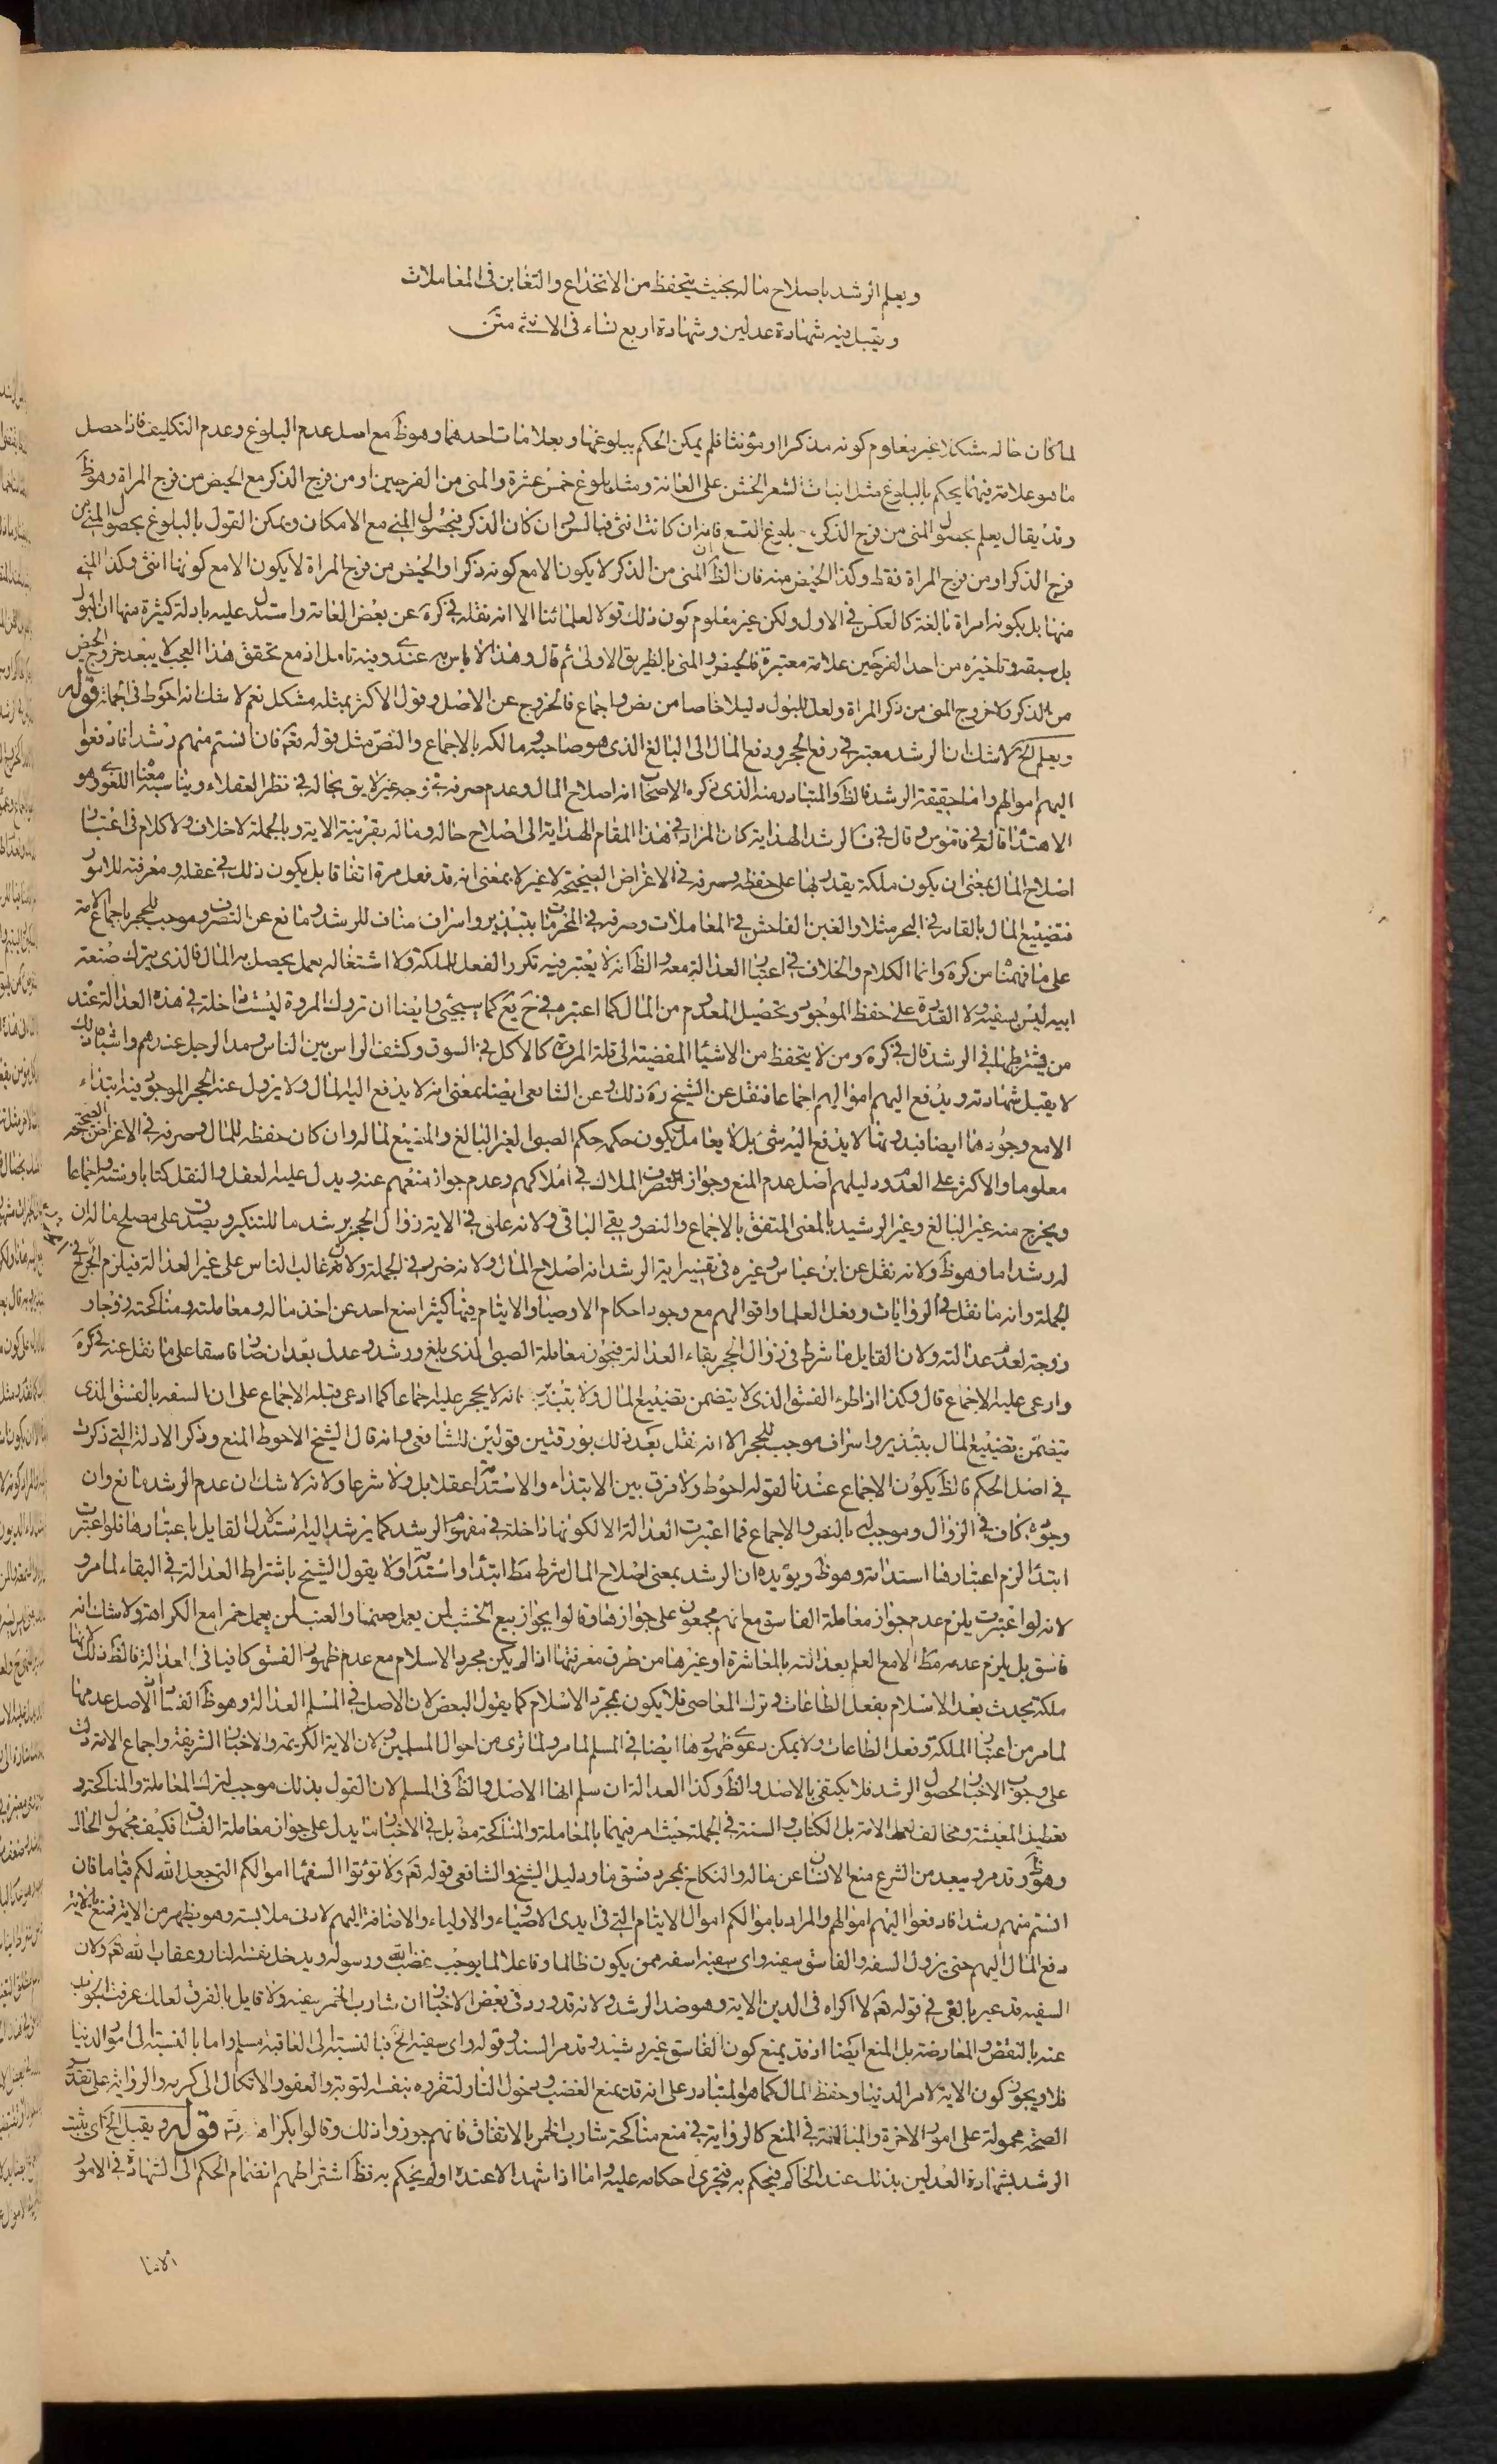 ويعلم الرشد باصلاح ماله بحيث يتحفظ من الانخداع والتغابن فى المعاملات
ويقبل فيه شهادة عدلين وشهادة اربع نساء فى الانثى متن
لما كان حاله مشكلا غير معلوم كونه مذكرا او مؤنثا فلم يمكن الحكم ببلوغها وبعلامات احدهما وهوظ مع اصل عدم البلوغ وعدم التكليف فاذا حصل
ما هو علامة فيهما يحكم بالبلوغ مثل انبات الشعر الخشن على العانة ومثله بلوغ خمس عشرة والمنى من الفرجين او من فرج الذكر مع الحيض من فرج المراة وهوظ
وقد يقال يعلم بحصول المنى من فرج الذكر بلوغ التسع فانه ان كانت انثى فبالسن وان كان الذكر فبحصول المنى مع الامكان ويمكن القول بالبلوغ بحصول المنى من
فرج الذكر او من فرج المراة فقط وكذا الحيض منه فان الظ ان المنى من الذكر لا يكون الا مع كونه ذكرا والحيض من فرج المراة لا يكون الا مع كونها انثى وكذا المنى
منها بل يكونه امراة بالغة كالعكس فى الاول ولكن غير معلوم كون ذلك قولا لعلمائنا الا انه نقله فى كره عن بعض العامة واستدل عليه بادلة كثيرة منها ان البول
بل سبقه وتاخيره من احد الفرجين علامة معتبرة فالحيض والمنى بالطريق الاولى ثم قال وهذا لا باس به عندى وفيه تامل اذ مع تحقق هذا العجب لا يبعد خروج الحيض
من الذكر ولا خروج المنى من ذكر المراة ولعل للبول دليلا خاصا من نص واجماع فالخروج عن الاصل وقول الاكثر بمثله مشكل نعم لا شك انه احوط فى الجملة قوله
ويعلم الخ لا شك ان الرشد معتبر فى رفع الحجر ودفع المال الى البالغ الذى هو صاحبه ومالكه بالاجماع والنص مثل قوله تعم فان انستم منهم رشدا فادفعوا
اليهم اموالهم واما حقيقة الرشد فالظ والمتبادر منه الذى ذكره الاصحاب انه اصلاح المال وعدم صرفه فى وجه غير لايق بحاله فى نظر العقلاء ويناسبه معناه اللغوى وهو
الاهتداء قاله فى قاموس وقال فى ف الرشد الهداية كان المراد فى هذا المقام الهداية الى اصلاح حاله وماله بقرينة الاية وبالجملة لا خلاف ولا كلام فى اعتبار
اصلاح المال بمعنى ان يكون ملكة يقدر بها على حفظه وصرفه فى الاغراض الصحيحة لا غير لا بمعنى انه قد فعل مرة اتفاقا بل يكون ذلك فى عقله ومعرفته للامور
فتضييع المال بالقائه فى البحر مثلا والغبن الفاحش فى المعاملات وصرفه فى المحرمات بتبذير واسراف مناف للرشد ومانع عن التصرف وموجب للحجر باجماع الامة
على ما فهمنا من كره وانما الكلام والخلاف فى اعتبار العدالة معه والظ انه لا يعتبر فيه تكرر الفعل بالملكة ولا اشتغاله بعمل يحصل به المال فالذى يترك صنعة
ابيه ليس بسفيه ولا القدرة على حفظ الموجود وتحصيل المعدوم من المال كما اعتبره فى ح يع كما سيجئ وايضا ان تروك المروة ليست داخلة فى هذه العدالة عند
من يشترطها فى الرشد قال فى كره ومن لا يتحفظ من الاشياء المفضية الى قلة المروة كالاكل فى السوق وكشف الراس بين الناس ومد الرجل عندهم واشباه ذلك
لا يقبل شهادته ويدفع اليهم اموالهم اجماعا فنقل عن الشيخ ره ذلك وعن الشافعى ايضا بمعنى انه لا يدفع اليه المال ولا يزول عنه الحجر الموجود فيه ابتداء
الا مع وجودها ايضا فبدونها لا يدفع اليه شئ بل لا يعامل فيكون حكمه حكم الصبى لغير البالغ والمضيع لماله وان كان حفظه للمال وصرفه فى الاغراض الصحيحة
معلوما والاكثر على العدم ودليلهم اصل عدم المنع وجواز التصرف الملاك فى املاكهم وعدم جواز منعهم عنه ويدل عليه العقل والنقل كتابا وسنة واجماعا
ويخرج منه غير البالغ وغير الرشيد بالمعنى المتفق بالاجماع والنص وبقى الباقى ولانه علق فى الاية زوال الحجر برشد ما للتنكير ويصدق على مصلح ماله ان
له رشدا ما وهوظ ولانه نقل عن ابن عباس وغيره فى تفسير اية الرشد انه اصلاح المال ولانه ضرر فى الجملة ولان غالب الناس على غير العدالة فيلزم الحرج فى
الجملة وانه ما نقل فى الروايات وفعل العلما واقوالهم مع وجود احكام الاوصياء والايتام فيها كثيرا منع احد عن اخذ ماله ومعاملته ومناكحته وزوجا و
زوجة لعدم عدالته ولان القايل ما شرط فى زوال الحجر بقاء العدالة فيجوز معاملة الصبى الذى بلغ ورشد وعدل بعد ان صار فاسقا على ما نقل عنه فى كره
وادعى عليه الاجماع قال وكذا اذا طرء الفسق الذى لا يتضمن تضييع المال ولا تبذيره فانه لا يحجر عليه اجماعا كما ادعى قبله الاجماع على ان السفه بالفسق الذى
يتضمن تضييع المال بتبذير واسراف موجب للحجر الا انه نقل بعد ذلك بورقتين قولين للشافعى وانه قال الشيخ الاحوط المنع وذكر الادلة التى ذكرت
فى اصل الحكم فالظ يكون الاجماع عندنا لقوله احوط ولا فرق بين الابتداء والاستدامة عقلا بل ولا شرعا ولانه لا شك ان عدم الرشد مانع وان
وجوده كان فى الزوال وموجب له بالنص والاجماع فما اعتبرت العدالة الا لكونها داخلة فى مفهوم الرشد كما يرشد اليه استدلال القايل باعتبارها فلو اعتبرت
ابتداء لزم اعتبارها استدامة وهوظ ويؤيده ان الرشد بمعنى اصلاح المال شرط مط ابتداء واستدامة ولا يقول الشيخ باشتراط العدالة فى البقاء لما مر و
لانه لو اعتبرت يلزم عدم جواز معاملة الفاسق مع انهم مجمعون على جوازها وقالوا بجواز بيع الخشب لمن يعمل صنما والعنب لمن يعمل خمرا مع الكراهة ولا شك انه
فاسق بل يلزم عدمه مط الا مع العلم بعدالته بالمعاشرة او غيرها من طرق معرفتها اذا لم يكن مجرد الاسلام مع عدم ظهور الفسق كافيا فى العدالة فالظ ذلك لانها
ملكة يحدث بعد الاسلام بفعل الطاعات وترك المعاصى فلا يكون بمجرد الاسلام كما يقول البعض لان الاصل فى المسلم العدالة وهوظ الفساد الاصل عدمها
لما مر من اعتبار الملكة وفعل الطاعات ولا يمكن دعوى ظهورها ايضا فى المسلم لما مر ولما ترى من احوال المسلمين ولان الاية الكريمة والاخبار الشريفة واجماع الامة دلت
على وجوب الاختبار لحصول الرشد فلا يكتفى بالاصل والظ وكذا العدالة ان سلم انها الاصل والظ فى المسلم لان القول بذلك موجب لترك المعاملة والمناكحة و
تعطيل المعيشة ومخالف لعمل الامة بل الكتاب والسنة فى الجملة حيث امر فيهما بالمعاملة والمناكحة مط بل فى الاخبار ما يدل على جواز معاملة الفساق فكيف مجهول الحال
وهوظ وقد مر وبعيد من الشرع منع الانسان عن ماله والنكاح بمجرد فسق ما ودليل الشيخ والشافعى قوله تعم ولا تؤتوا السفهاء اموالكم التى جعل الله لكم قياما فان
انستم منهم رشدا فادفعوا اليهم اموالهم والمراد باموالكم اموال الايتام التى فى ايدى الاوصياء والاولياء والاضافة اليهم لادنى ملابسة وهو يظهر من الاية فمنع بالاية
دفع المال اليهم حتى يزول السفه والفاسق سفيه واى سفيه اسفه ممن يكون ظالما وفاعلا لما يوجب غضب الله ورسوله ويدخل نفسه النار وعقاب الله تعم ولان
السفيه قد عبر بالغى فى قوله تعم لا اكراه فى الدين الاية وهو ضد الرشد ولانه قد ورد فى بعض الاخبار ان شارب الخمر سفيه ولا قايل بالفرق لعلك عرفت الجواب
عنه بالنقض والمعارضة بل المنع ايضا اذ قد يمنع كون الفاسق غير رشيد وقد مر السند وقوله واى سفيه الخ فبالنسبة الى العاقبة مسلم واما بالنسبة الى امور الدنيا
فلا ويجوز كون الاية لامر الدنيا وحفظ المال كما هو المتبادر على انه قد يمنع الغضب ودخول النار لتفرده بنفسه لتوبته والعفو والاتكال الى كريم والرواية على تقدير
الصحة محمولة على امور الاخرة والمبالغة فى المنع كالرواية فى منع مناكحة شارب الخمر بالاتفاق فانهم جوزوا ذلك وقالوا بكراهته قوله ويقبل الخ اى يثبت
الرشد بشهادة العدلين بذلك عند الحاكم فيحكم به فتجرى احكامه عليه واما اذا شهدا لا عنده او لم يحكم به فظ اشتراطهم انضمام الحكم الى الشهادة فى الامور
الامنا